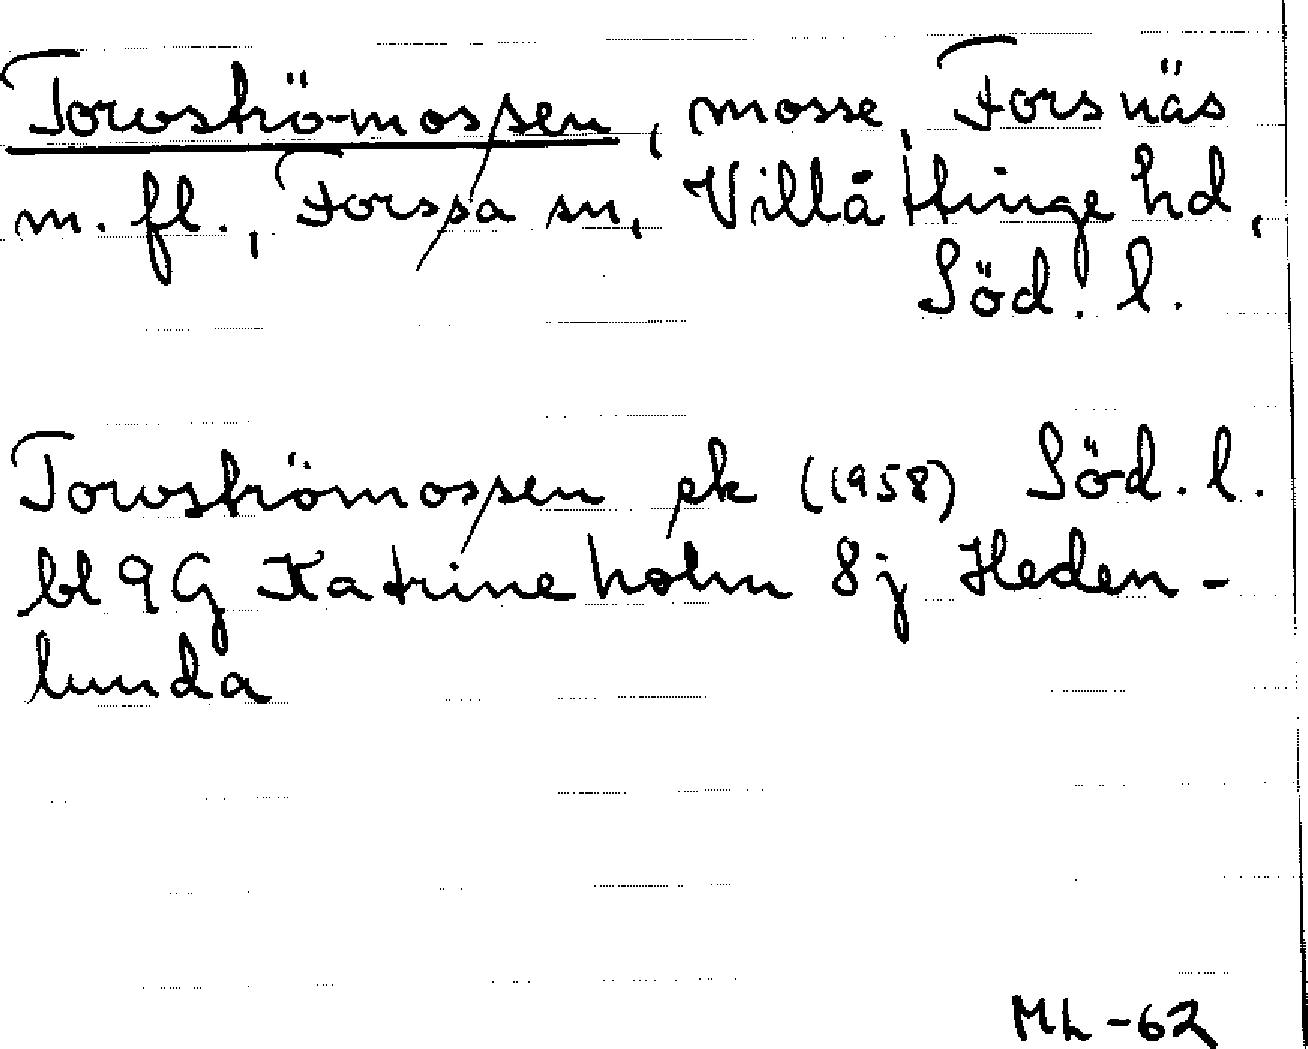 Torvströ-mossen, mosse, Forsnäs
m. fl., Forssa sn, Villåttinge hd,
Söd. l.
Torvströmossen ek (1958) Söd. l.
bl 9G Katrineholm 8j Heden-
lunda
ML -62